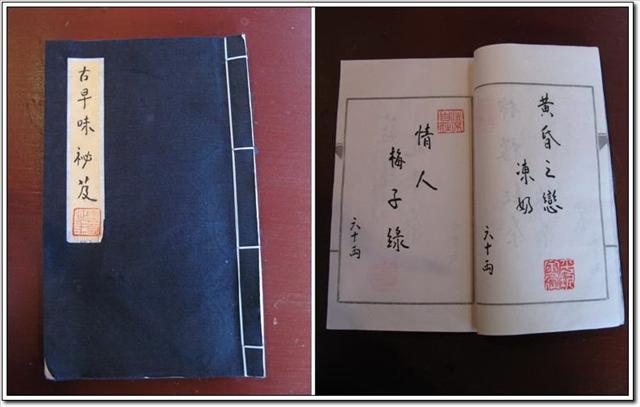 古早味 祕笈
黃昏之戀
凍奶
六十兩
情人
梅子綠
六十兩